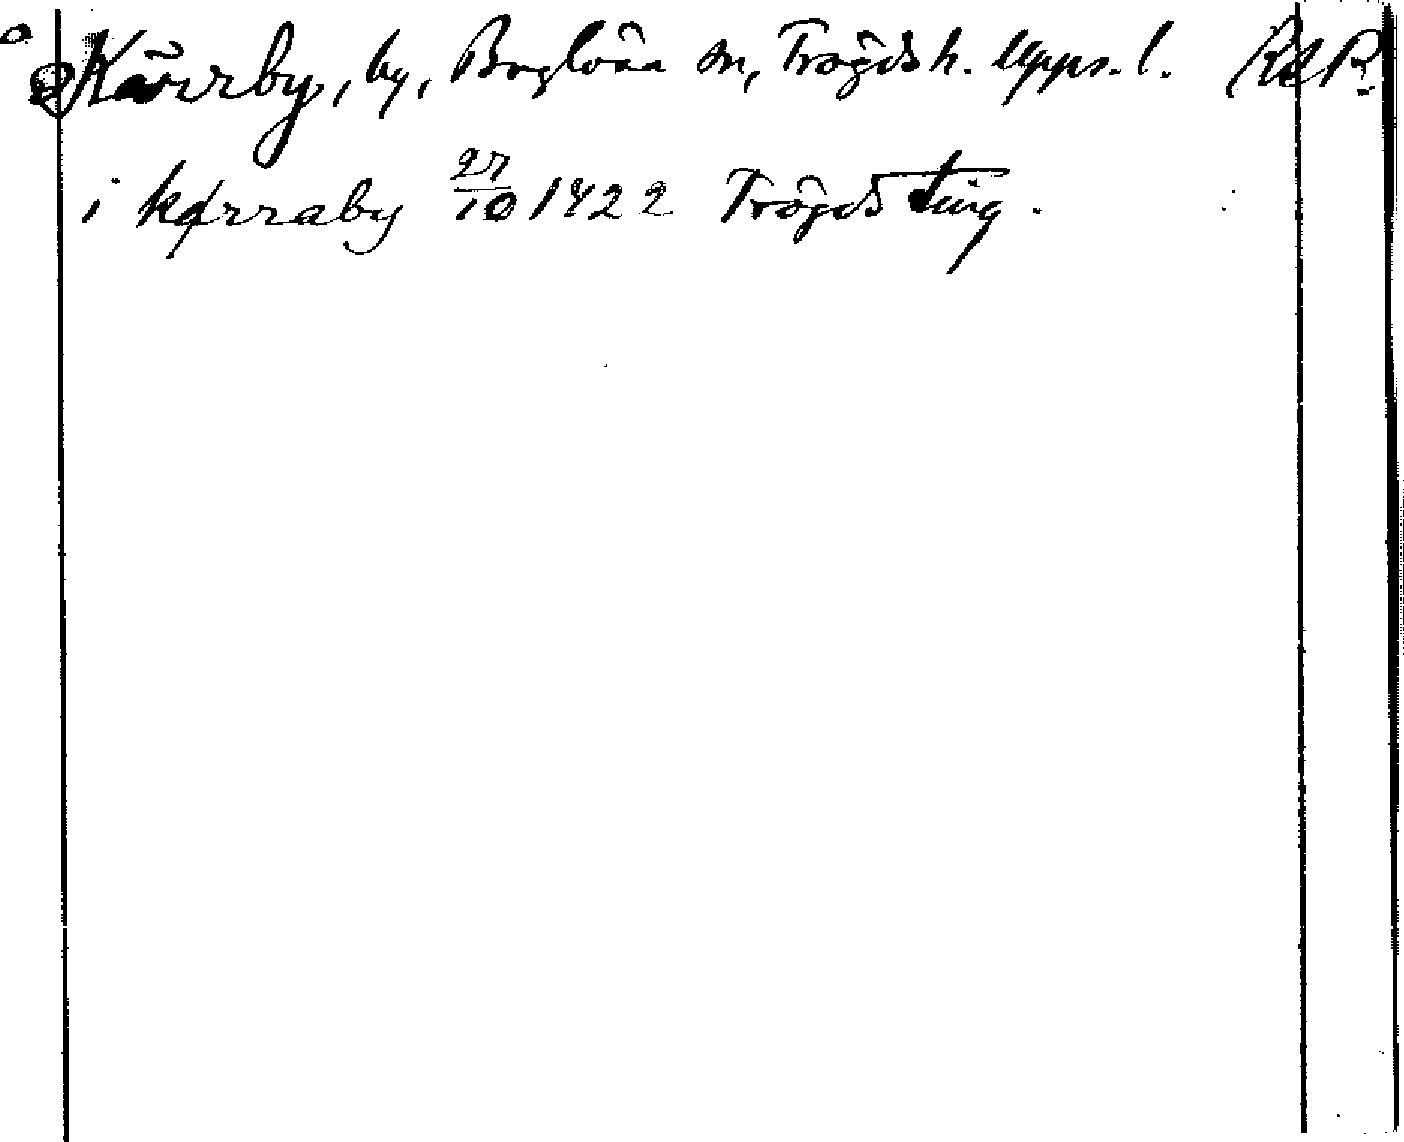 Kärrby, by, Boglösa sn, Trögds h. Upps. l. RAP.
i kørraby 27/10 1422 Trögds ting.